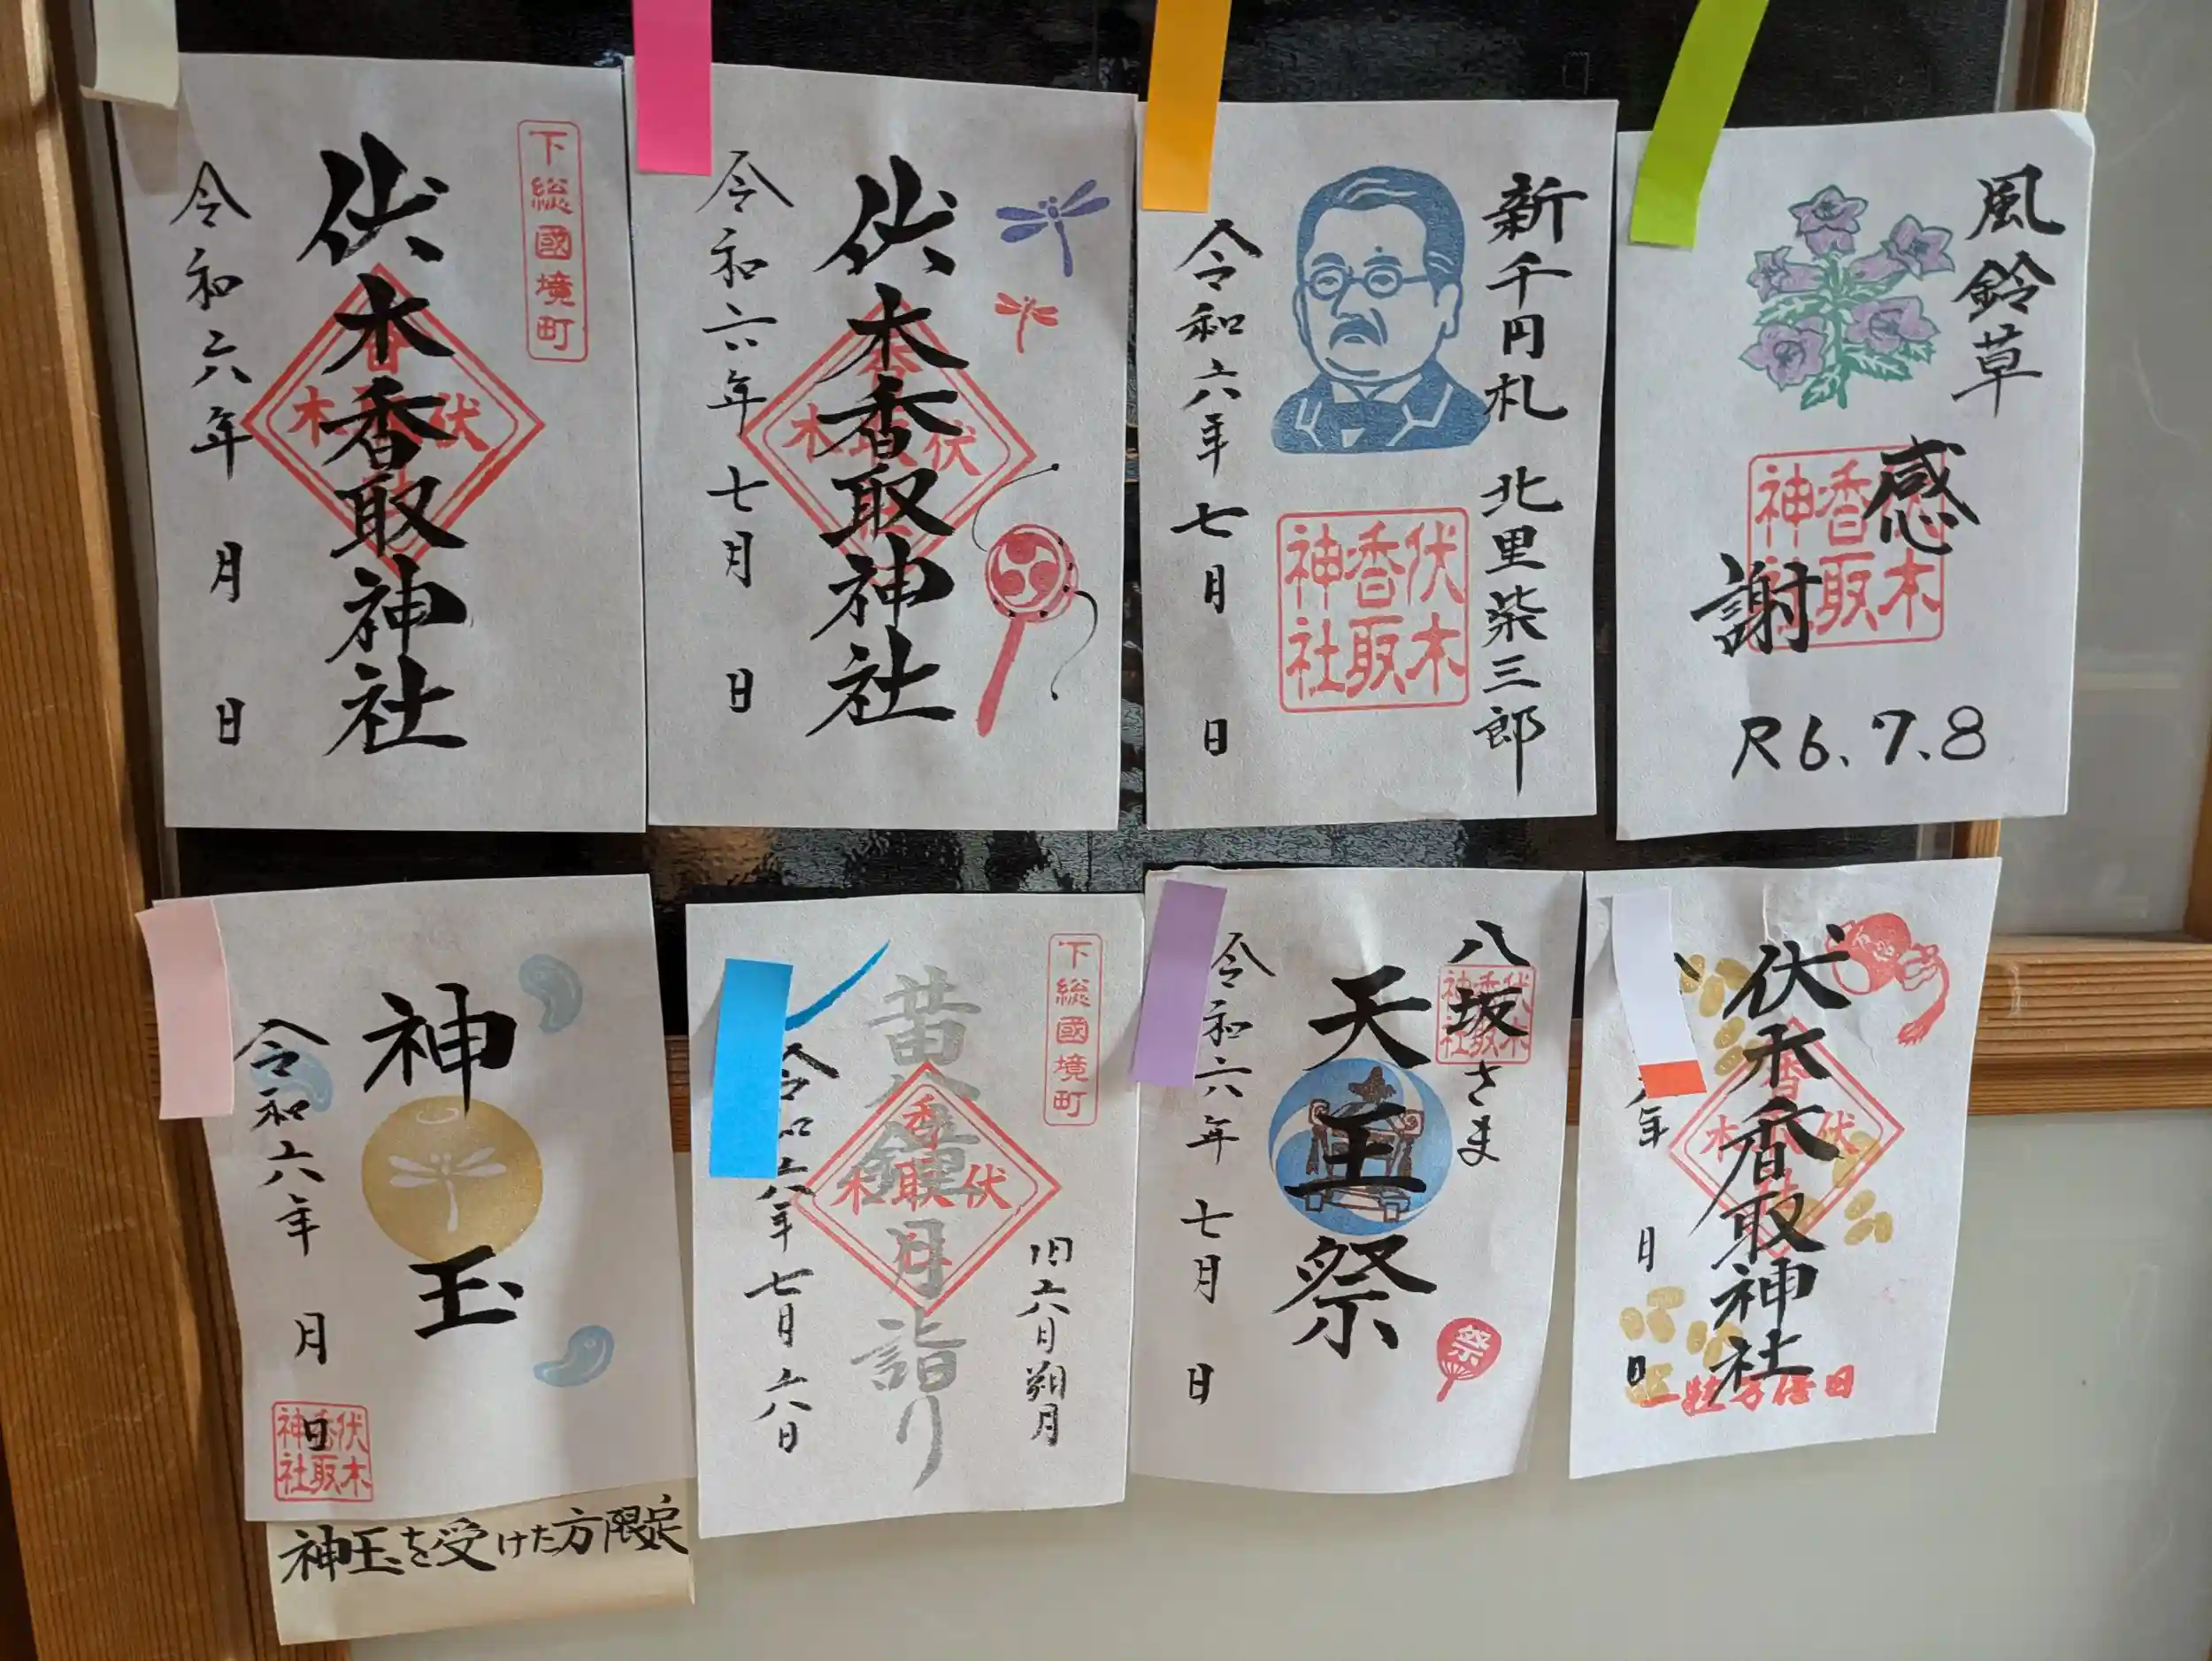 下総國境町
伏木香取神社
令和六年 月 日
伏木香取神社
令和六年 七月 日
新千円札 北里柴三郎
伏木香取神社
令和六年 七月 日
風鈴草
感謝
伏木香取神社
R6.7.8
神玉
令和六年 月 日
伏木香取神社
神玉を受けた方限定
下総國境町
黄金鐘
月詣り
伏木香取
旧六月朔月
令和六年七月六日
八坂さま
伏木香取神社
天王祭
祭
令和六年 七月 日
伏木香取神社
年 月 日
一粒万倍日